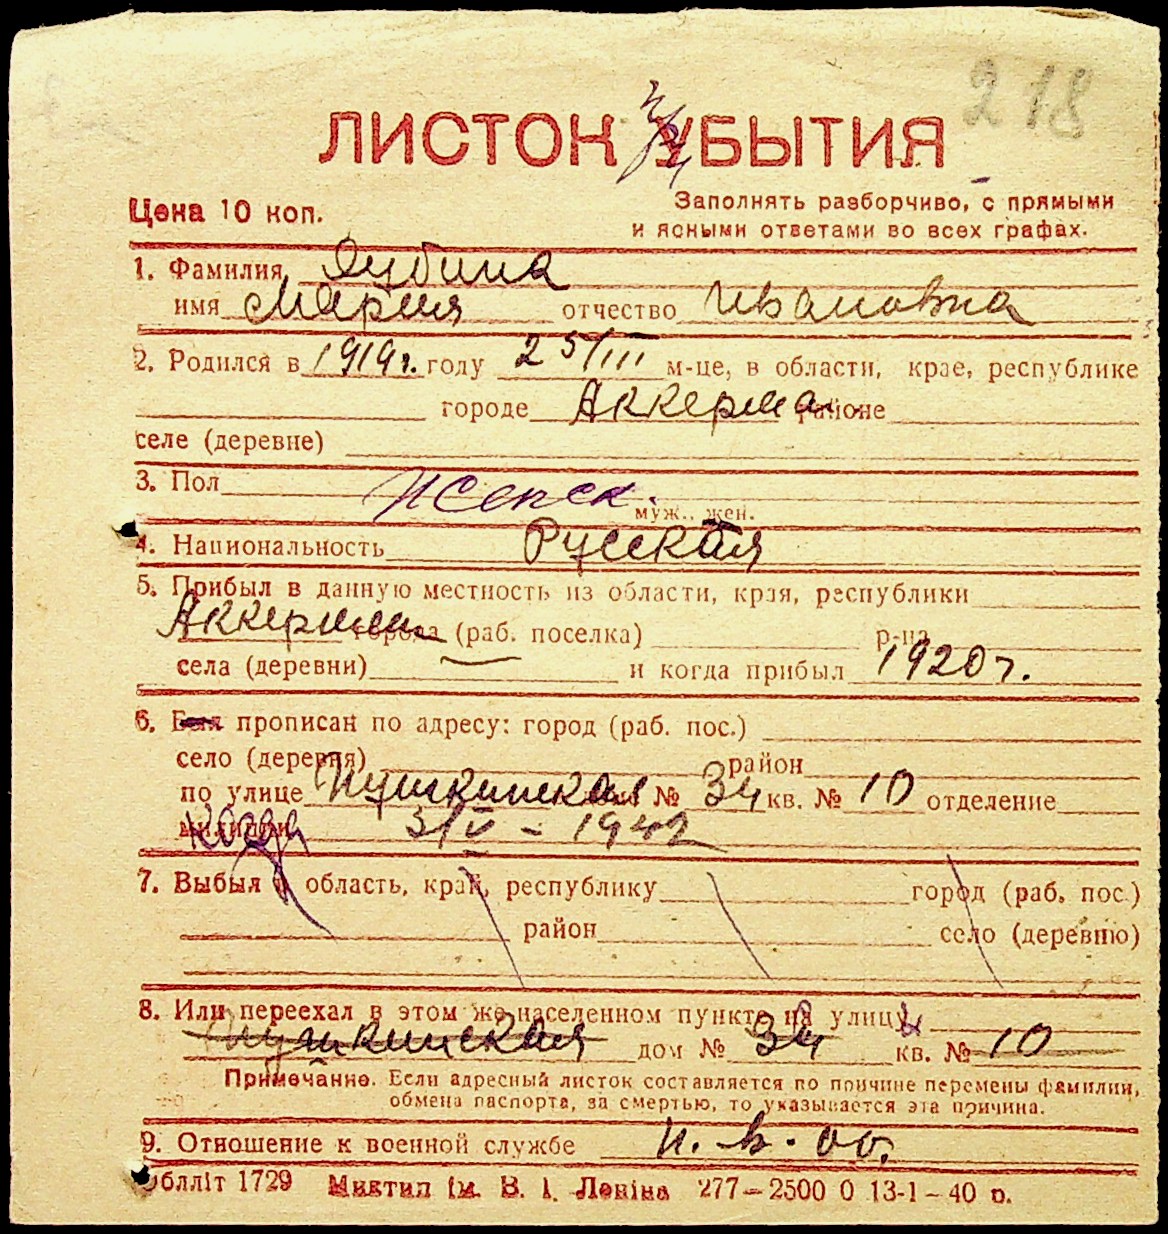 218
ЛИСТОК УБЫТИЯ
Цена 10 коп.
Заполнять разборчиво, с прямыми
и ясными ответами во всех графах.
1. Фамилия
имя Мария отчество Ивановна
2. Родился в 1919 г. году 25/III м-це, в области, крае, республике
городе Аккерман районе
селе (деревне)
3. Пол женск.
муж., жен.
4. Национальность Русская
5. Прибыл в данную местность из области, края, республики
Аккерман города (раб. поселка) р-на
села (деревни) и когда прибыл 1920 г.
6. Был прописан по адресу: город (раб. пос.)
село (деревня) район
по улице Пушкинская дом № 34 кв. № 10 отделение
милиции Когда 31/V - 1942
7. Выбыл в область, край, республику город (раб. пос.)
район село (деревню)
8. Или переехал в этом же населенном пункте на улицу
Пушкинская дом № 34 кв. № 10
Примечание. Если адресный листок составляется по причине перемены фамилии,
обмена паспорта, за смертью, то указывается эта причина.
9. Отношение к военной службе н. в. об.
Облліт 1729 Миктип ім. В. І. Леніна 277—2500 0 13-1-40 р.